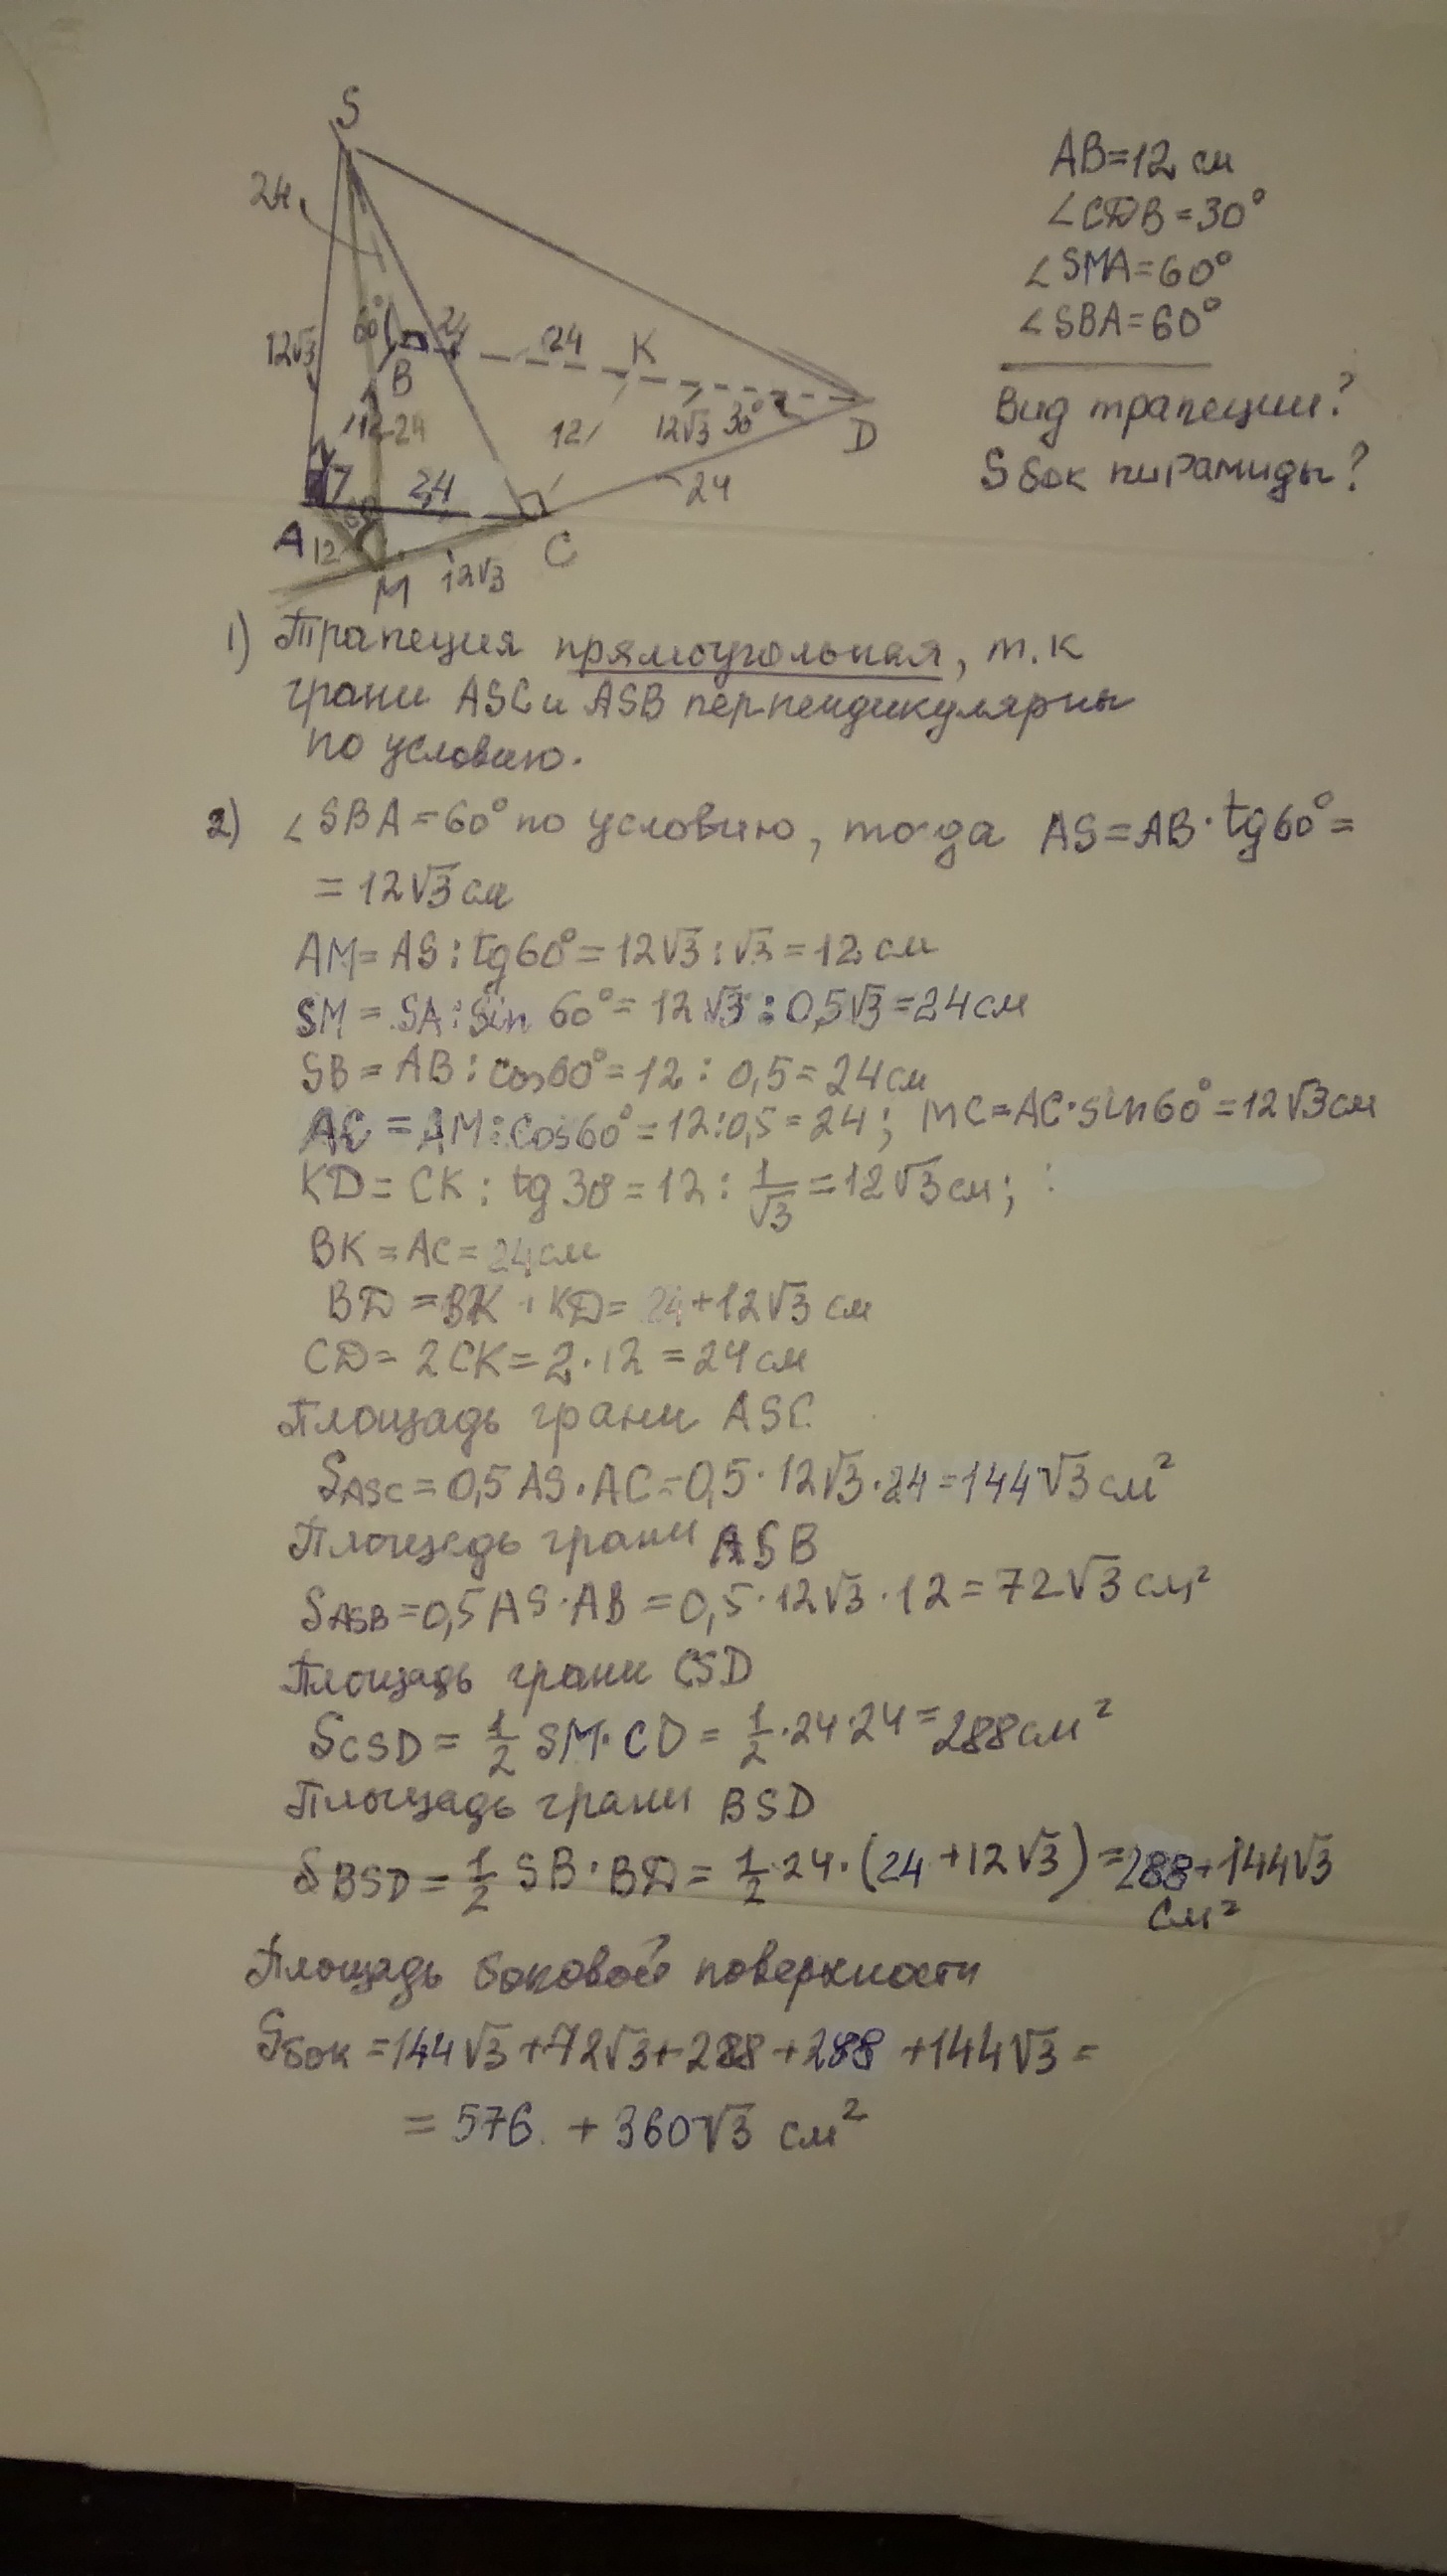 S
24
AB=12 см
∠CDB=30°
∠SMA=60°
∠SBA=60°
Вид трапеции?
S бок пирамиды?
60°
24
24
K
12√3
B
12
24
12
12√3
30°
D
24
24
A
12
60
C
M
12√3
1) Трапеция прямоугольная, т.к
грани ASC и ASB перпендикулярны
по условию.
2) ∠SBA=60° по условию, тогда AS=AB·tg60°=
=12√3 см
AM=AS:tg60°=12√3:√3=12 см
SM=SA:sin 60°=12√3:0,5√3=24 см
SB=AB:cos60°=12:0,5=24 см
AC=AM:cos60°=12:0,5=24; MC=AC·sin60°=12√3 см
KD=CK:tg30=12:1/√3=12√3 см; :
BK=AC=24 см
BD=BK+KD=24+12√3 см
CD=2CK=2·12=24 см
Площадь грани ASC
SASC=0,5AS·AC=0,5·12√3·24=144√3 см²
Площадь грани ASB
SASB=0,5AS·AB=0,5·12√3·12=72√3 см²
Площадь грани CSD
SCSD=1/2 SM·CD=1/2·24·24=288 см²
Площадь грани BSD
SBSD=1/2 SB·BD=1/2·24·(24+12√3)=288+144√3
см²
Площадь боковой поверхности
Sбок=144√3+72√3+288+288+144√3=
=576+360√3 см²